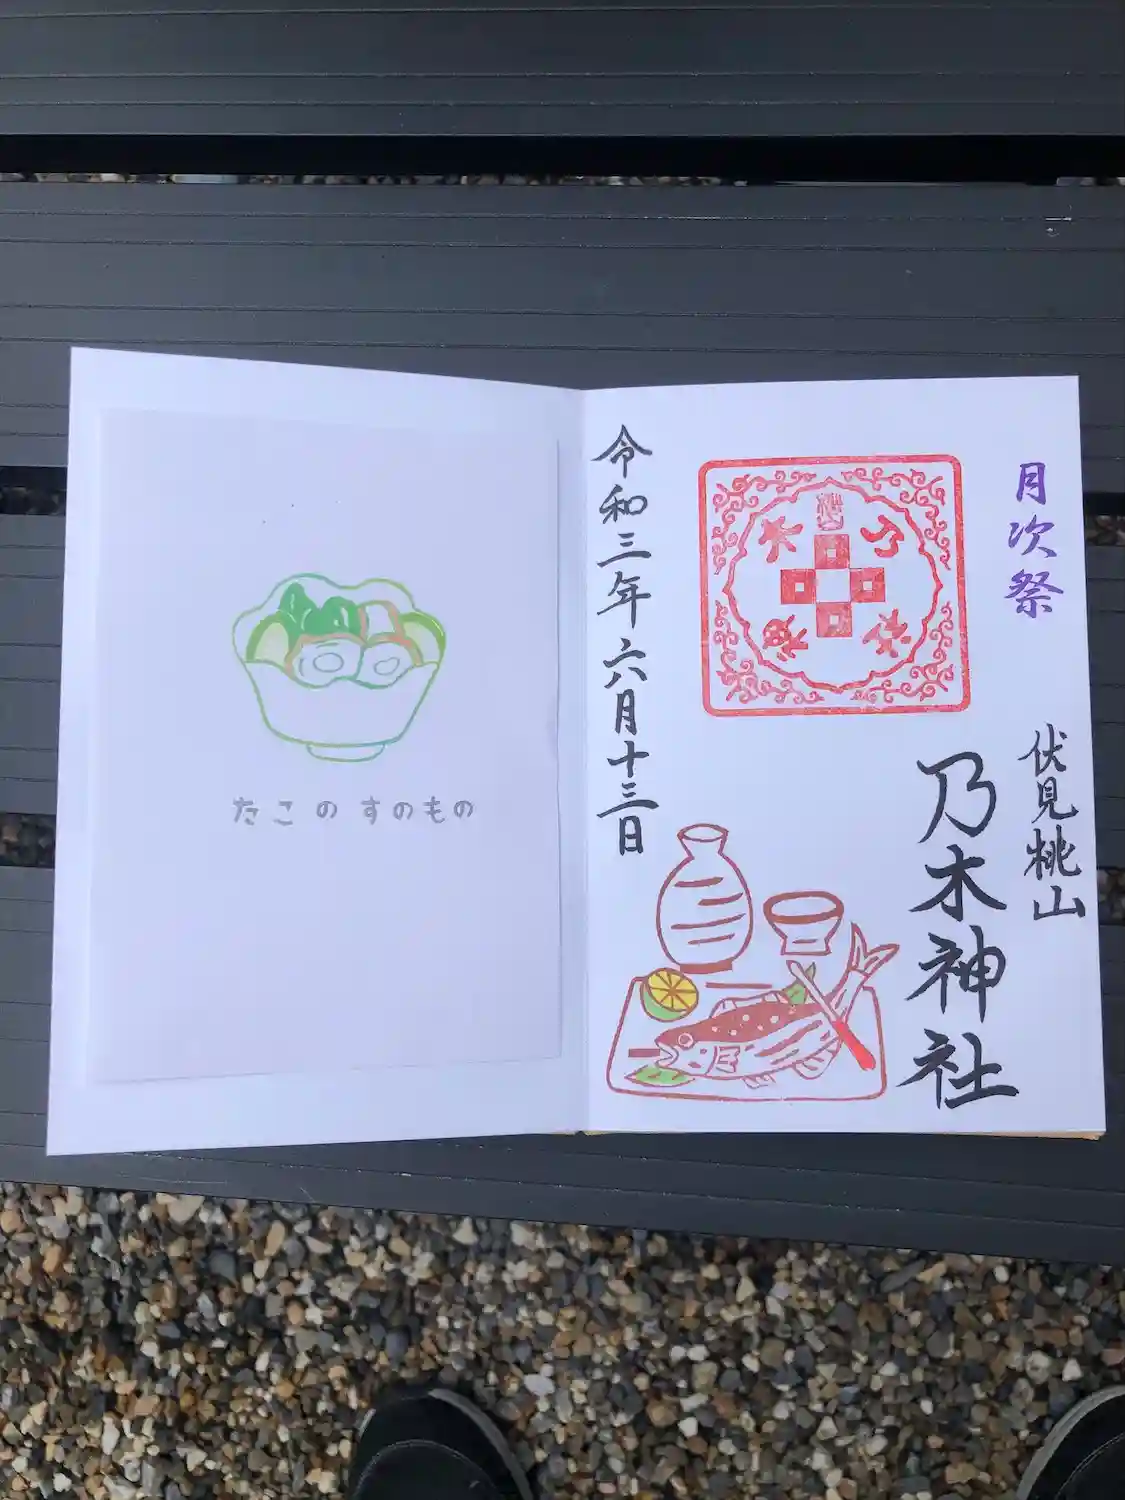 月次祭
伏見桃山
乃木神社
令和三年六月十三日
たこの すのもの